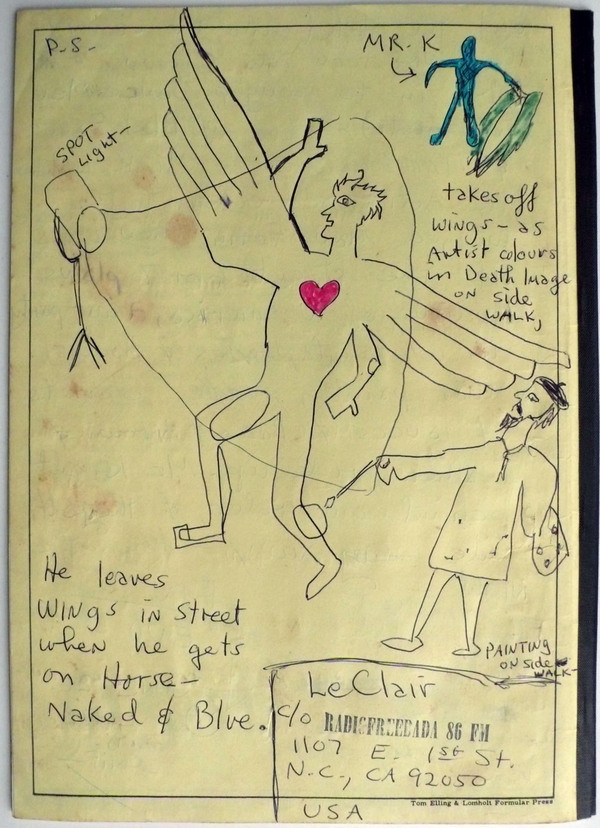 P.S-
MR. K
SPOT
Light-
takes off
wings - as
Artist colours
in Death Image
on side
WALK,
He leaves
WINGS in street
when he gets
on Horse-
Naked & Blue.
PAINTING
on side
WALK-
LeClair
c/o RADIOFREEDADA 86 FM
1107 E. 1st St.
N.C., CA 92050
USA
Tom Elling & Lomholt Formular Press